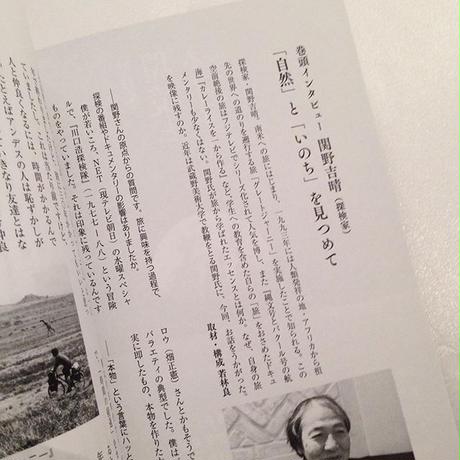 巻頭インタビュー 関野吉晴(探検家)
「自然」と「いのち」を見つめて
探検家・関野吉晴。南米への旅にはじまり、一九九三年には人類発祥の地・アフリカから祖
先の世界への道のりを遡行する旅「グレートジャーニー」を実施したことで知られる。この
空前絶後の旅はフジテレビでシリーズ化されて人気を博し、また『縄文号とパクール号の航
海』『カレーライスを一から作る』など、学生への教育を含めた自らの「旅」をおさめたドキュ
メンタリーも少なくはない。関野氏が旅から学ばれたエッセンスとは何か。なぜ、自身の旅
を映像に残すのか。近年は武蔵野美術大学で教鞭をとる関野氏に、今回、お話をうかがった。
取材・構成 若林良
――関野さんの原点からの質問です。旅に興味を持つ過程で、
探検の番組やドキュメンタリーの影響はありましたか。
僕が若いころ、NET(現テレビ朝日)の水曜スペシャ
ルで、「川口浩探検隊」(一九七七-八八)という冒険
ものをやっていました。それは印象に残っているんです
ロウ(畑正憲)さんとかもそうで
バラエティの典型でした。僕は
実に即したもの、本物を作りた
――「本物」という言葉にハッと
人と仲良くなるには、時間がかか
たとえばアンデスの人は恥ずかしが
いきなり友達とはな